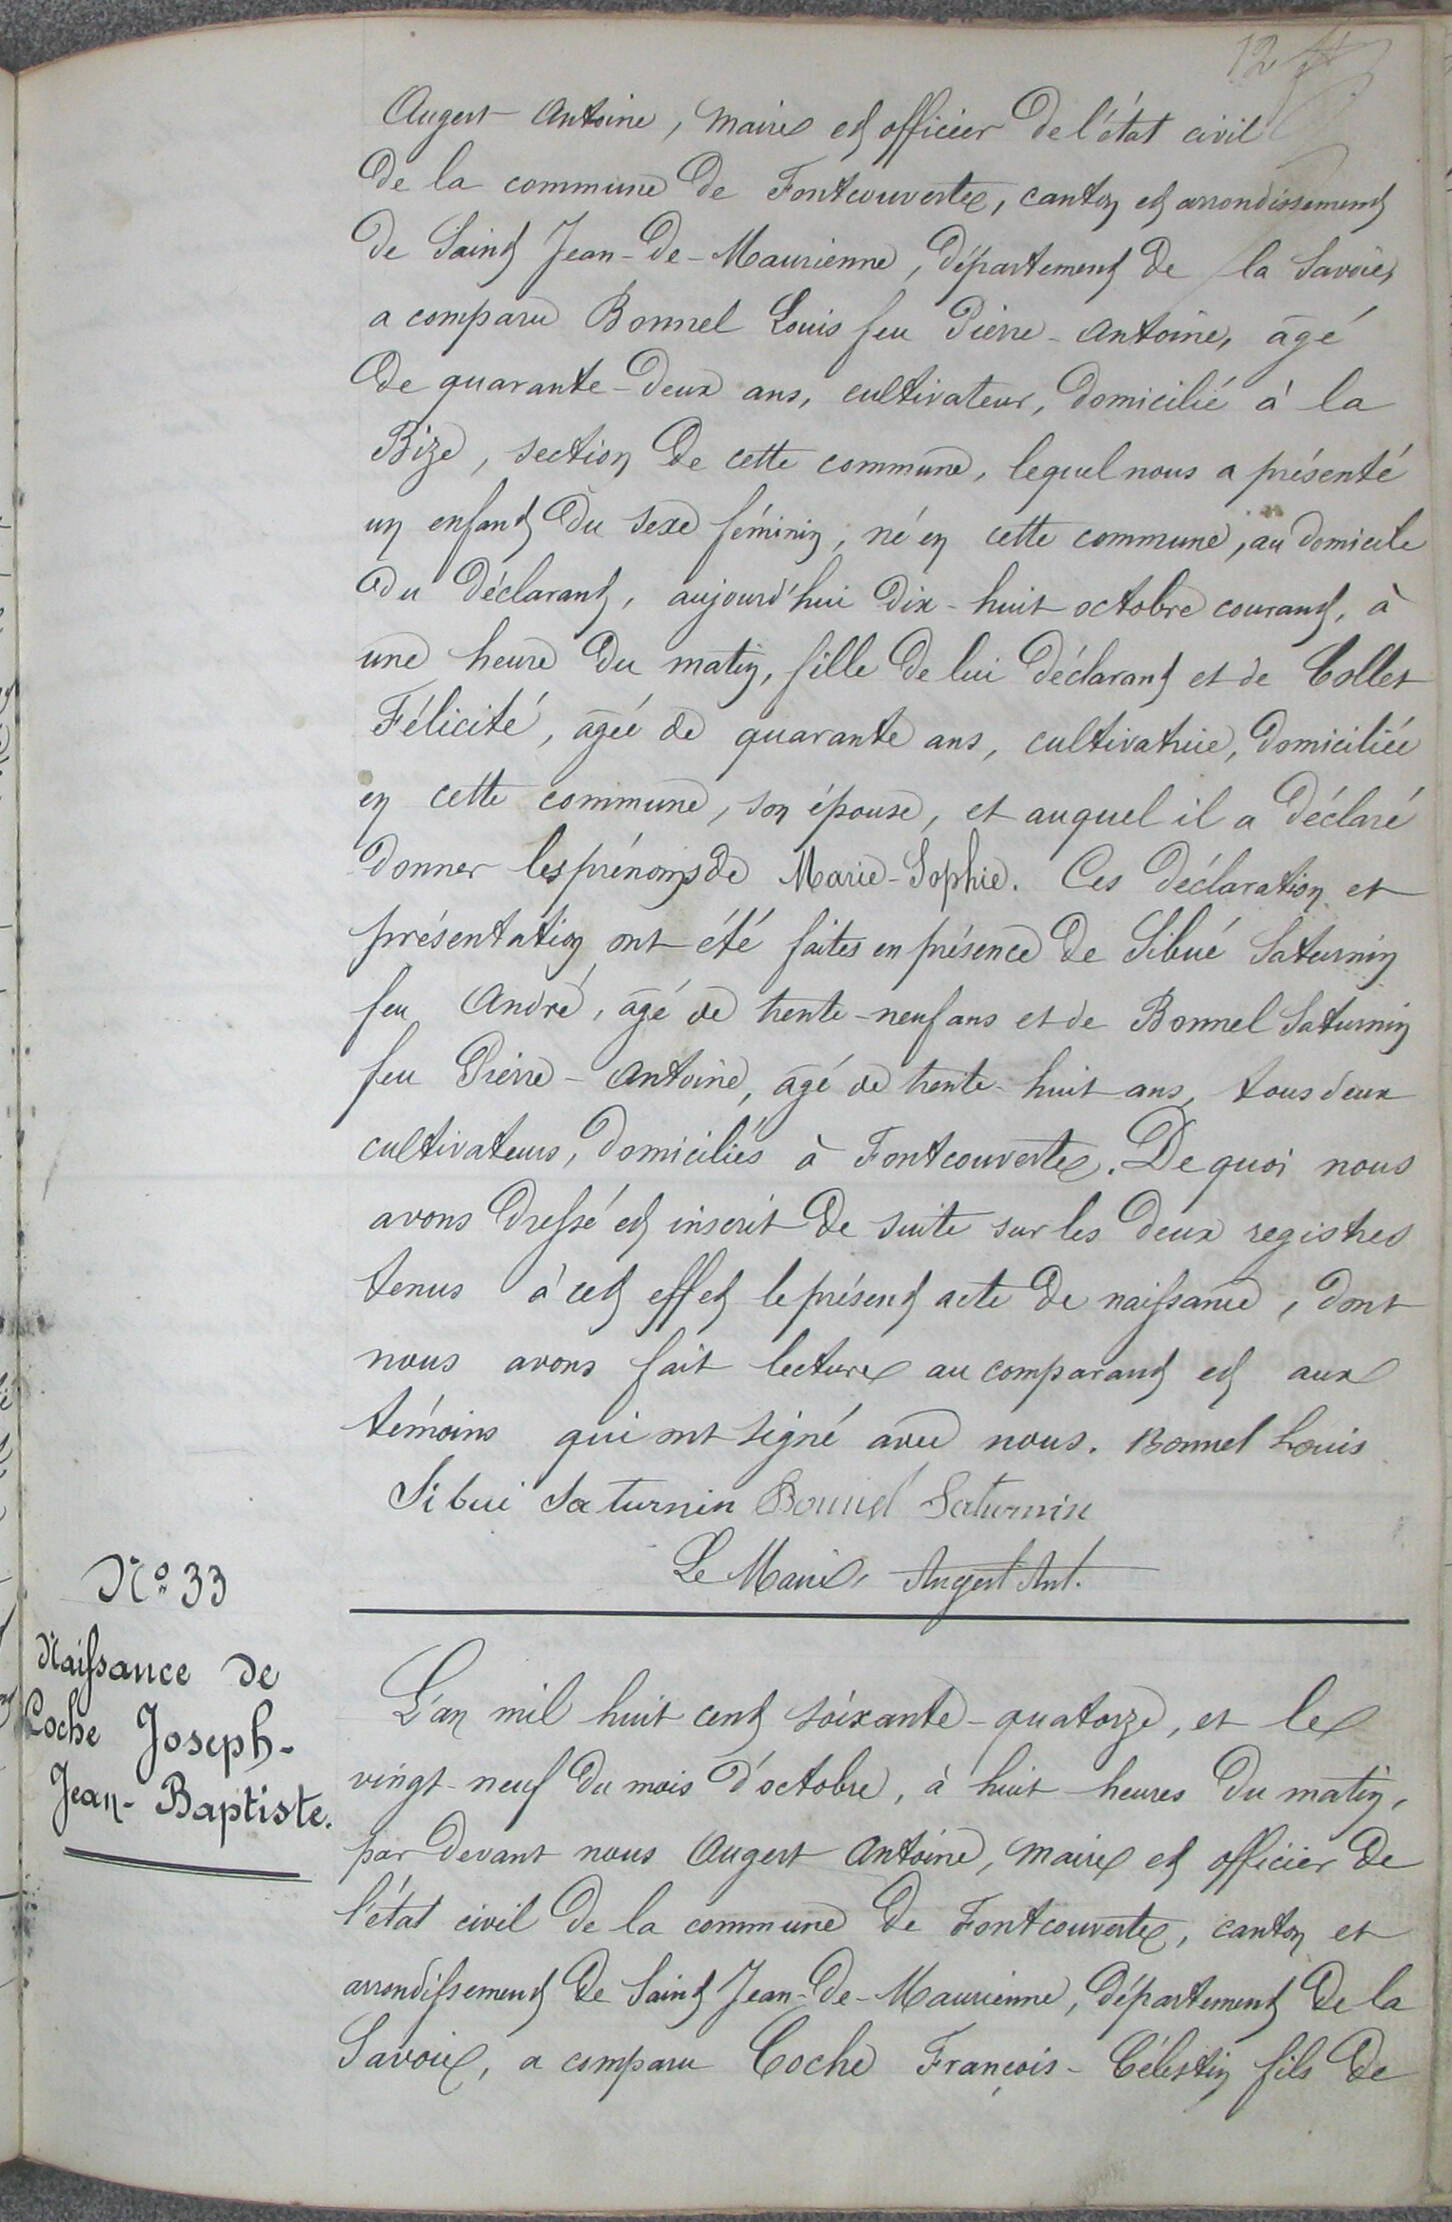 12
Augert Antoine, maire et officier de l'état civil
de la commune de Fontcouverte, canton et arrondissement
de Saint Jean-de-Maurienne, département de la Savoie,
a comparu Bonnel Louis feu Pierre-Antoine, âgé
de quarante-deux ans, cultivateur, domicilié à la
Bize, section de cette commune, lequel nous a présenté
un enfant du sexe féminin, né en cette commune, au domicile
du déclarant, aujourd'hui dix-huit octobre courant, à
une heure du matin, fille de lui déclarant et de Collet
Félicité, âgée de quarante ans, cultivatrice, domiciliée
en cette commune, son épouse, et auquel il a déclaré
donner les prénoms de Marie-Sophie. Ces déclaration et
présentation ont été faites en présence de Sibué Saturnin
feu André, âgé de trente-neuf ans et de Bonnel Saturnin
feu Pierre-Antoine, âgé de trente-huit ans, tous deux
cultivateurs, domiciliés à Fontcouverte. De quoi nous
avons dressé et inscrit de suite sur les deux registres
tenus à cet effet le présent acte de naissance, dont
nous avons fait lecture au comparant et aux
témoins qui ont signé avec nous. Bonnel Louis
Sibui Saturnin Bonnel Saturnin
Le Maire, Augert Ant.
N° 33
Naissance de
Coche Joseph-
Jean-Baptiste.
L'an mil huit cent soixante-quatorze, et le
vingt-neuf du mois d'octobre, à huit heures du matin,
par devant nous Augert Antoine, maire et officier de
l'état civil de la commune de Fontcouverte, canton et
arrondissement de Saint Jean-de-Maurienne, département de la
Savoie, a comparu Coche François-Célestin fils de